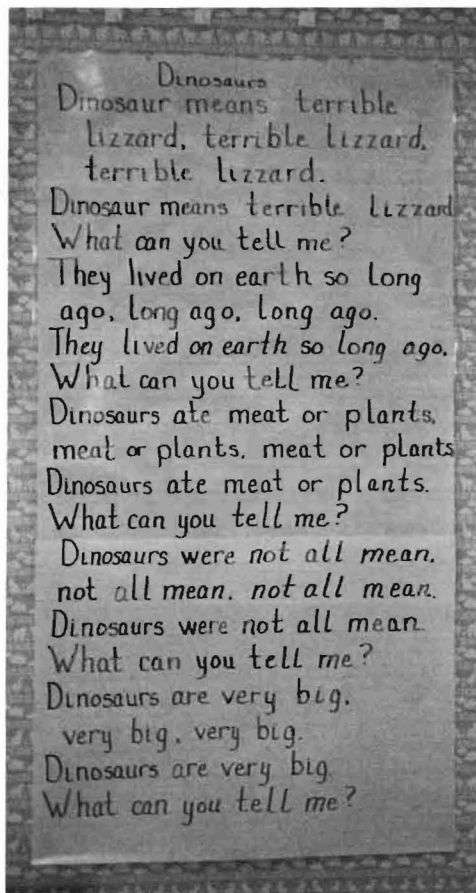 Dinosaurs
Dinosaur means terrible
lizzard, terrible lizzard,
terrible lizzard.
Dinosaur means terrible lizzard
What can you tell me?
They lived on earth so long
ago, long ago, long ago.
They lived on earth so long ago.
What can you tell me?
Dinosaurs ate meat or plants,
meat or plants, meat or plants
Dinosaurs ate meat or plants.
What can you tell me?
Dinosaurs were not all mean,
not all mean, not all mean.
Dinosaurs were not all mean.
What can you tell me?
Dinosaurs are very big,
very big, very big.
Dinosaurs are very big
What can you tell me?